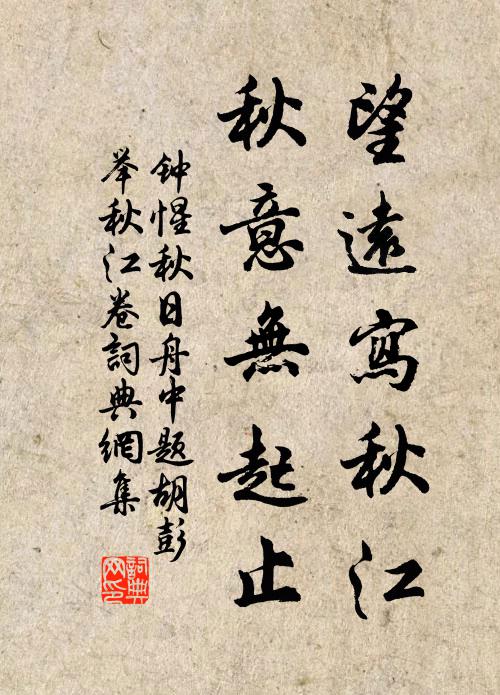 望遠寫秋江
秋意無起止
钟惺秋日舟中题胡彭
举秋江卷詞典網集
詞典
网印